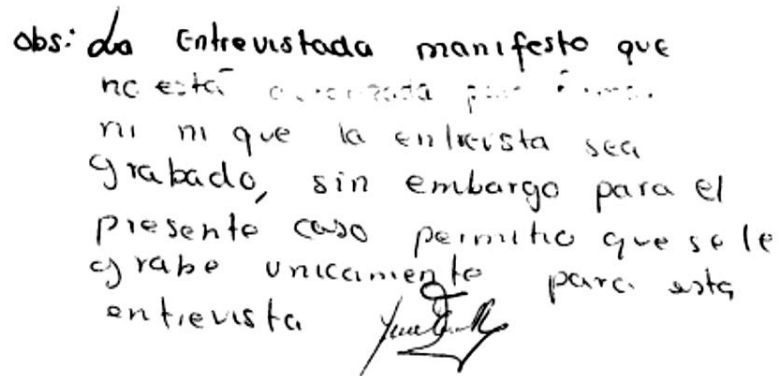 obs: La Entrevistada manifesto que
no está autorizada para
ni ni que la entrevista sea
grabado, sin embargo para el
presente caso permitio que se le
grabe unicamente para esta
entrevista